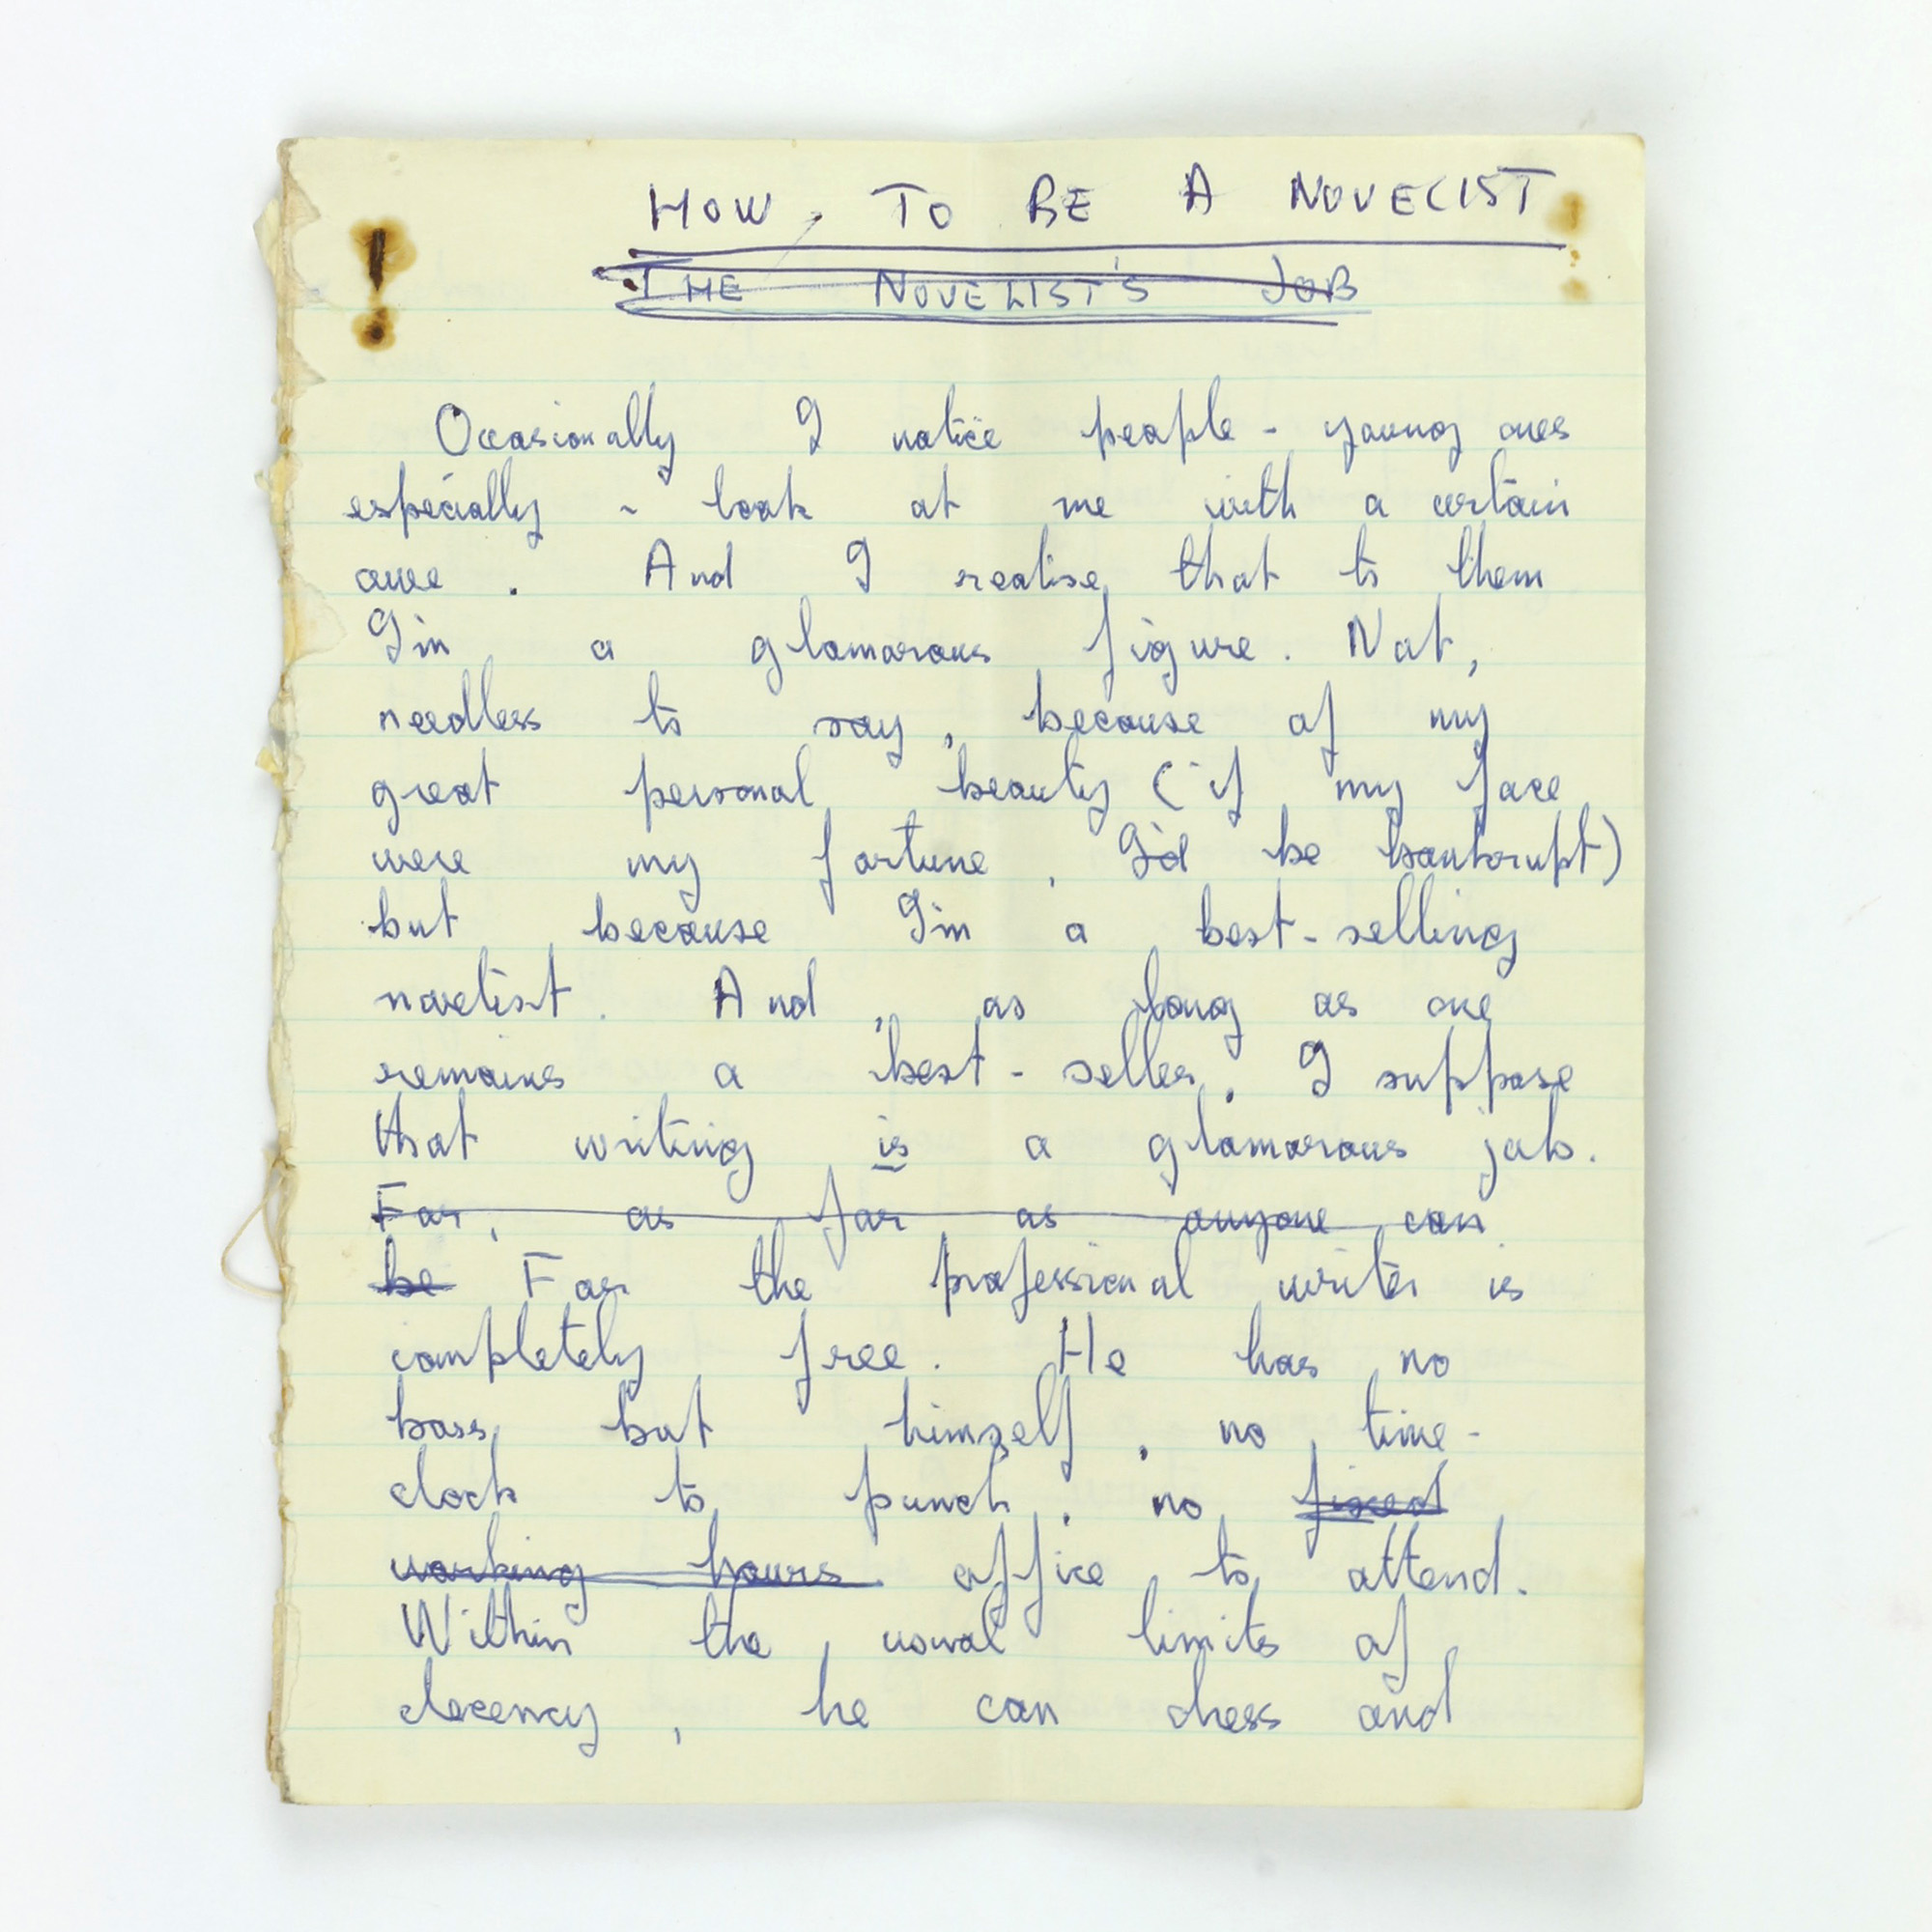 HOW TO BE A NOVELIST
THE NOVELIST'S JOB
Occasionally I notice people - young ones
especially - look at me with a certain
awe. And I realise that to them
I'm a glamorous figure. Not,
needless to say, because of my
great personal beauty (if my face
were my fortune, I'd be bankrupt)
but because I'm a best-selling
novelist. And, as long as one
remains a best-seller, I suppose
that writing is a glamorous job.
For, as far as anyone can
be For the professional writer is
completely free. He has no
boss but himself, no time-
clock to punch, no fixed
working hours office to attend.
Within the usual limits of
decency, he can dress and